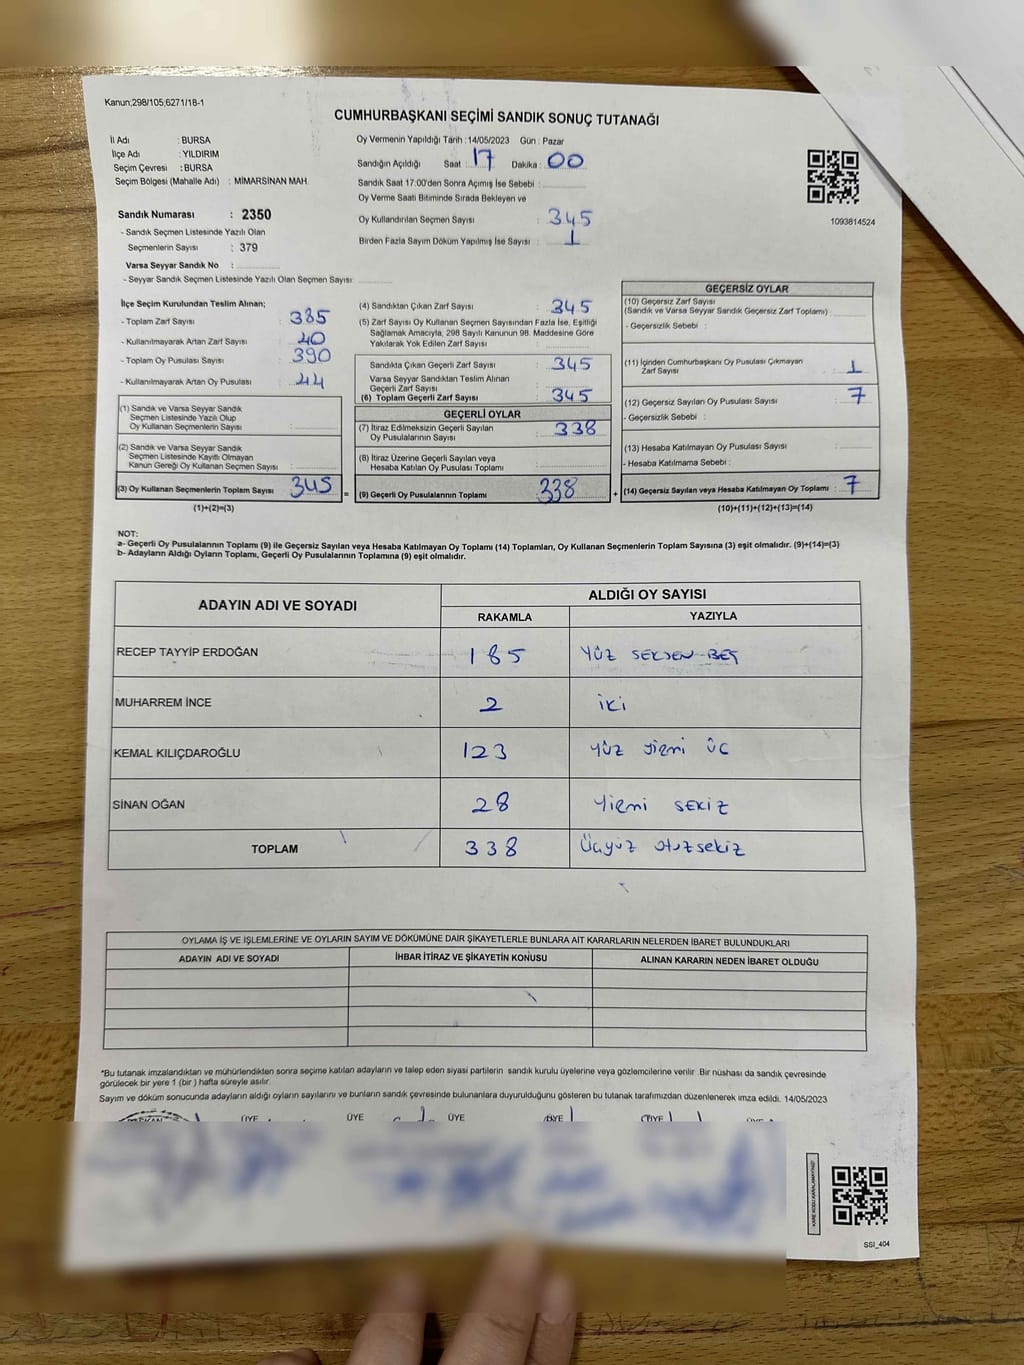 Kanun;298/105;6271/18-1
CUMHURBAŞKANI SEÇİMİ SANDIK SONUÇ TUTANAĞI
İl Adı : BURSA
İlçe Adı : YILDIRIM
Seçim Çevresi : BURSA
Seçim Bölgesi (Mahalle Adı) : MİMARSİNAN MAH.
Sandık Numarası : 2350
- Sandık Seçmen Listesinde Yazılı Olan
Seçmenlerin Sayısı : 379
Varsa Seyyar Sandık No :
- Seyyar Sandık Seçmen Listesinde Yazılı Olan Seçmen Sayısı :
Oy Vermenin Yapıldığı Tarih : 14/05/2023 Gün : Pazar
Sandığın Açıldığı Saat : 17 Dakika : 00
Sandık Saat 17:00'den Sonra Açımış İse Sebebi :
Oy Verme Saati Bitiminde Sırada Bekleyen ve
Oy Kullandırılan Seçmen Sayısı : 345
Birden Fazla Sayım Döküm Yapılmış İse Sayısı : 1
1093814524
İlçe Seçim Kurulundan Teslim Alınan;
- Toplam Zarf Sayısı : 385
- Kullanılmayarak Artan Zarf Sayısı : 40
- Toplam Oy Pusulası Sayısı : 390
- Kullanılmayarak Artan Oy Pusulası : 44
(1) Sandık ve Varsa Seyyar Sandık
Seçmen Listesinde Yazılı Olup
Oy Kullanan Seçmenlerin Sayısı :
(2) Sandık ve Varsa Seyyar Sandık
Seçmen Listesinde Kayıtlı Olmayan
Kanun Gereği Oy Kullanan Seçmen Sayısı :
(3) Oy Kullanan Seçmenlerin Toplam Sayısı : 345
(1)+(2)=(3)
=
(4) Sandıktan Çıkan Zarf Sayısı : 345
(5) Zarf Sayısı Oy Kullanan Seçmen Sayısından Fazla İse, Eşitliği
Sağlamak Amacıyla, 298 Sayılı Kanunun 98. Maddesine Göre
Yakılarak Yok Edilen Zarf Sayısı :
Sandıkta Çıkan Geçerli Zarf Sayısı : 345
Varsa Seyyar Sandıktan Teslim Alınan
Geçerli Zarf Sayısı :
(6) Toplam Geçerli Zarf Sayısı : 345
GEÇERLİ OYLAR
(7) İtiraz Edilmeksizin Geçerli Sayılan
Oy Pusulalarının Sayısı : 338
(8) İtiraz Üzerine Geçerli Sayılan veya
Hesaba Katılan Oy Pusulası Toplamı :
(9) Geçerli Oy Pusulalarının Toplamı : 338
+
GEÇERSİZ OYLAR
(10) Geçersiz Zarf Sayısı
(Sandık ve Varsa Seyyar Sandık Geçersiz Zarf Toplamı) :
- Geçersizlik Sebebi :
(11) İçinden Cumhurbaşkanı Oy Pusulası Çıkmayan
Zarf Sayısı : 1
(12) Geçersiz Sayılan Oy Pusulası Sayısı : 7
- Geçersizlik Sebebi :
(13) Hesaba Katılmayan Oy Pusulası Sayısı :
- Hesaba Katılmama Sebebi :
(14) Geçersiz Sayılan veya Hesaba Katılmayan Oy Toplamı : 7
(10)+(11)+(12)+(13)=(14)
NOT:
a- Geçerli Oy Pusulalarının Toplamı (9) ile Geçersiz Sayılan veya Hesaba Katılmayan Oy Toplamı (14) Toplamları, Oy Kullanan Seçmenlerin Toplam Sayısına (3) eşit olmalıdır. (9)+(14)=(3)
b- Adayların Aldığı Oyların Toplamı, Geçerli Oy Pusulalarının Toplamına (9) eşit olmalıdır.
ADAYIN ADI VE SOYADI ALDIĞI OY SAYISI
RAKAMLA YAZIYLA
RECEP TAYYİP ERDOĞAN 185 YÜZ SEKSEN BEŞ
MUHARREM İNCE 2 iki
KEMAL KILIÇDAROĞLU 123 yüz yirmi üç
SİNAN OĞAN 28 yirmi SEKİZ
TOPLAM 338 Üçyüz otuzsekiz
OYLAMA İŞ VE İŞLEMLERİNE VE OYLARIN SAYIM VE DÖKÜMÜNE DAİR ŞİKAYETLERLE BUNLARA AİT KARARLARIN NELERDEN İBARET BULUNDUKLARI
ADAYIN ADI VE SOYADI İHBAR İTİRAZ VE ŞİKAYETİN KONUSU ALINAN KARARIN NEDEN İBARET OLDUĞU
*Bu tutanak imzalandıktan ve mühürlendikten sonra seçime katılan adayların ve talep eden siyasi partilerin sandık kurulu üyelerine veya gözlemcilerine verilir .Bir nüshası da sandık çevresinde
görülecek bir yere 1 (bir ) hafta süreyle asılır.
Sayım ve döküm sonucunda adayların aldığı oyların sayılarını ve bunların sandık çevresinde bulunanlara duyurulduğunu gösteren bu tutanak tarafımızdan düzenlenerek imza edildi. 14/05/2023
ÜYE ÜYE ÜYE ÜYE ÜYE ÜYE
SSI_404